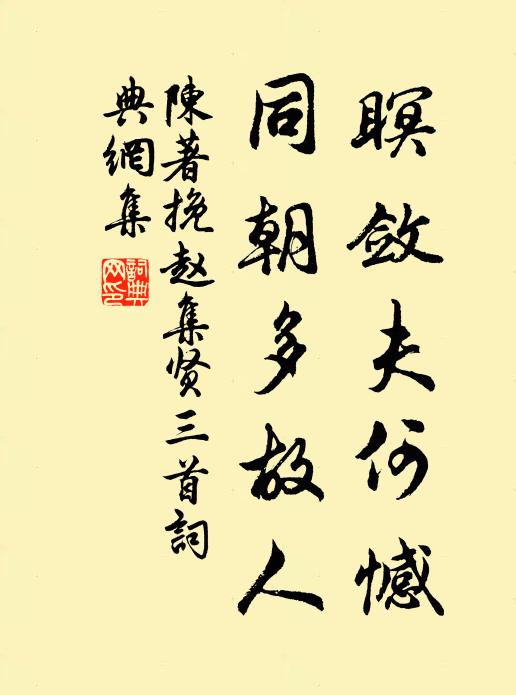 瞑斂夫何憾
同朝多故人
陳著挽赵集贤三首詞
典網集
詞典网印